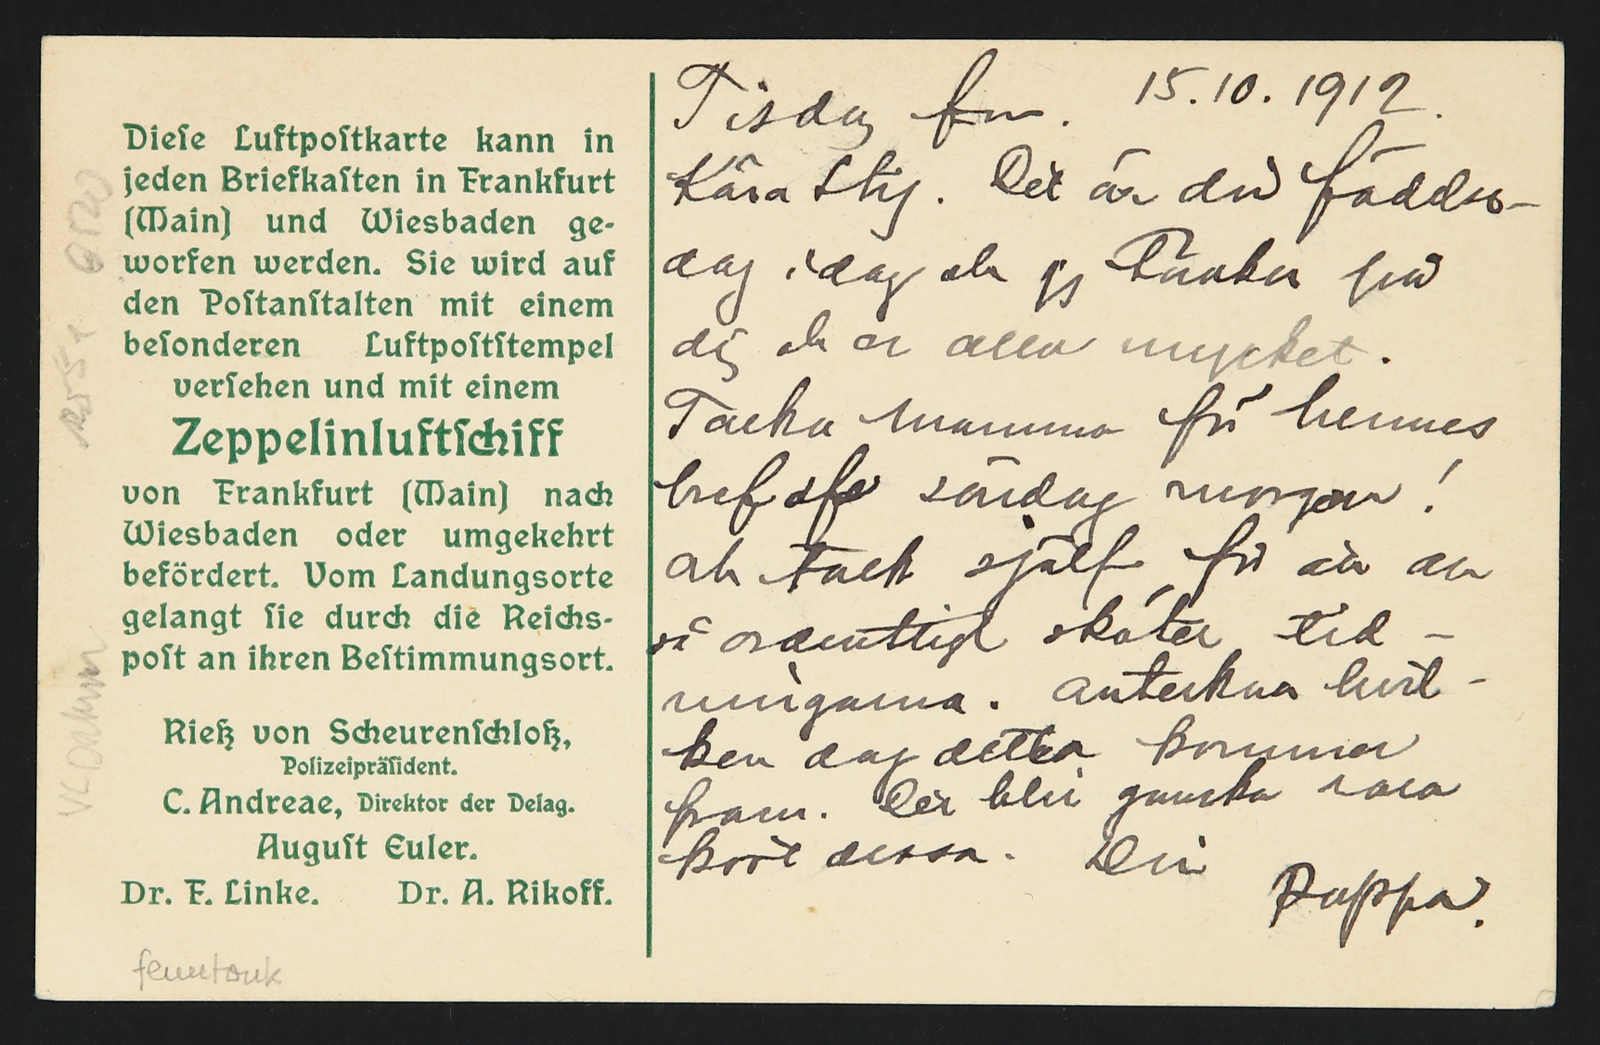 Diese Luftpostkarte kann in
jeden Briefkasten in Frankfurt
(Main) und Wiesbaden ge-
worfen werden. Sie wird auf
den Postanstalten mit einem
besonderen Luftpoststempel
versehen und mit einem
Zeppelinluftschiff
von Frankfurt (Main) nach
Wiesbaden oder umgekehrt
befördert. Vom Landungsorte
gelangt sie durch die Reichs-
post an ihren Bestimmungsort.
Rieß von Scheurenschloß,
Polizeipräsident.
C. Andreae, Direktor der Delag.
August Euler.
Dr. F. Linke. Dr. A. Rikoff.
Tisdag fm. 15.10.1912.
Kära Stig. Det är din födelse-
dag idag och jag tänker på
dig och er alla mycket.
Tacka mamma för hennes
bref söndag morgon!
och tack själf för att du
så ordentligt sköter tid-
ningarna. Anteckna hvil-
ken dag detta kommer
fram. Det blir ganska rara
kort dessa. Din
Pappa.